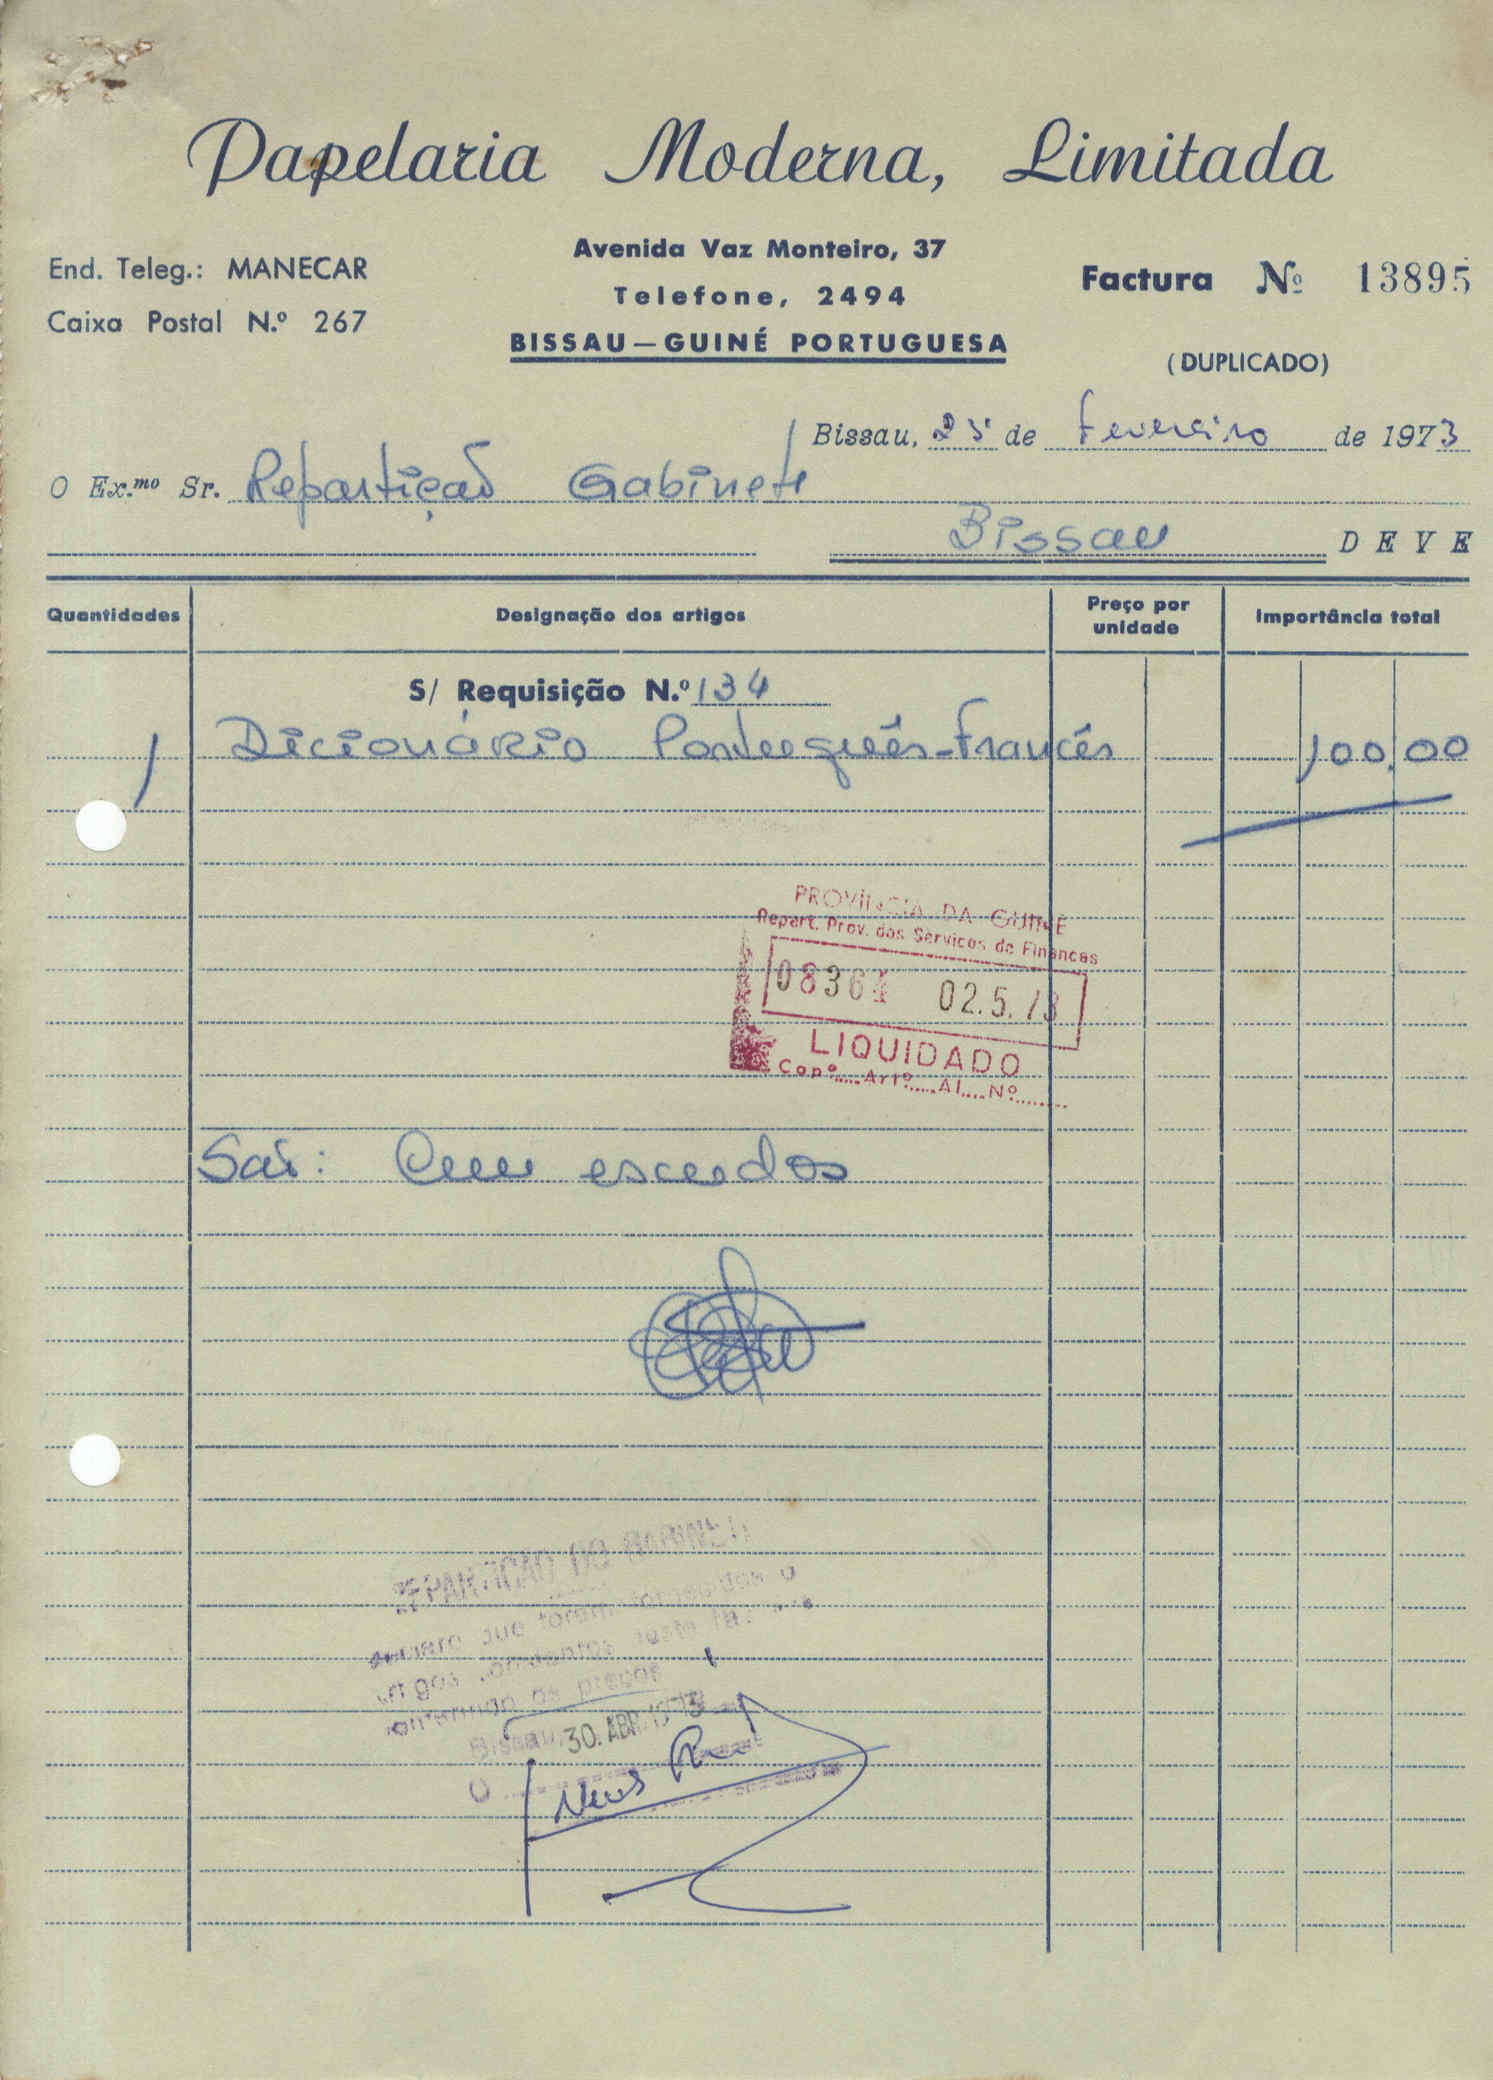 Papelaria Moderna, Limitada
Avenida Vaz Monteiro, 37
End. Teleg.: MANECAR
Telefone, 2494
Factura Nº 13895
Caixa Postal N.º 267
BISSAU—GUINÉ PORTUGUESA
(DUPLICADO)
Bissau, 25 de Fevereiro de 1973
O Ex.mo Sr. Repartição Gabinete
Bissau DEVE
Quantidades Designação dos artigos Preço por unidade Importância total
S/ Requisição N.º 134
1 Dicionário Português-Francês 100,00
PROVÍNCIA DA GUINÉ
Repart. Prov. dos Serviços de Finanças
08364 02.5.73
LIQUIDADO
Capº.....Artº.....Al....Nº.......
São: Cem escudos
REPARTIÇÃO DO GABINETE
que foram
os preços
Bissau, 30. ABR. 1973
O